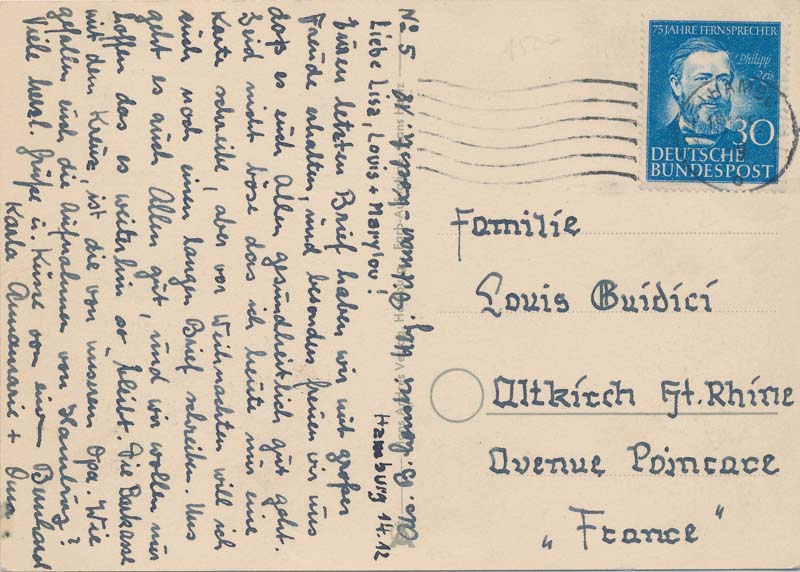 No 5
Hamburg 14.12
Liebe Lisa, Louis + Marylou!
Euren letzten Brief haben wir mit großer
Freude erhalten, und besonders freuen wir uns
daß es euch Allen gesundheitlich gut geht.
Seid nicht böse das ich heute nur eine
Karte schreibe, aber vor Weihnachten will ich
euch noch einen langen Brief schreiben. Uns
geht es auch Allen gut, und wir wollen nur
hoffen das es weiterhin so bleibt. Die Barkasse
mit dem Kreuz, ist die von unserem Opa. Wie
gefallen euch die Aufnahmen von Hamburg?
Viele herzl. Grüße u. Küsse von euer Bernhard
Karla Annemarie + Oma
75 JAHRE FERNSPRECHER
Philipp
Reis
30
DEUTSCHE
BUNDESPOST
HAMBURG
Familie
Louis Guidici
Altkirch Ht. Rhine
Avenue Poincare
„France"